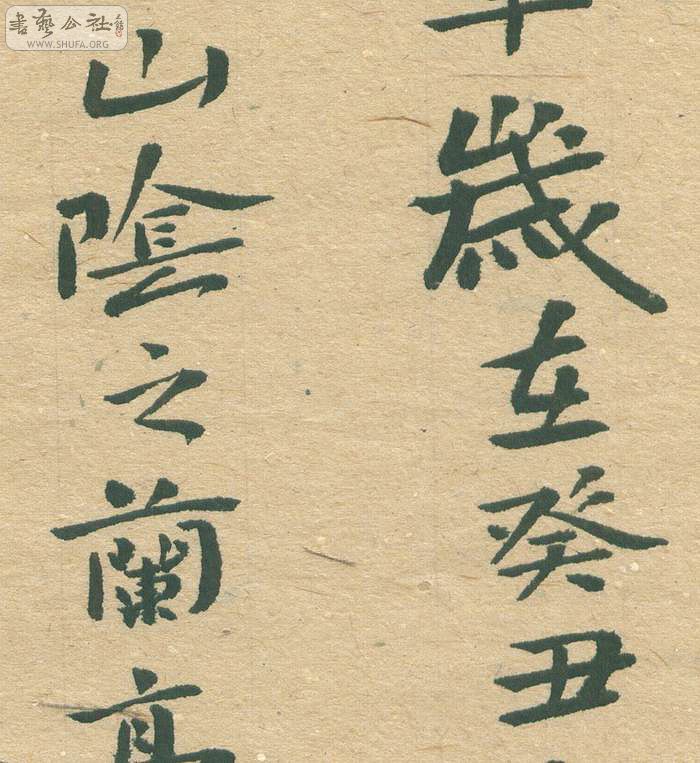 歲在癸丑
山陰之蘭
書藝公社
WWW.SHUFA.ORG